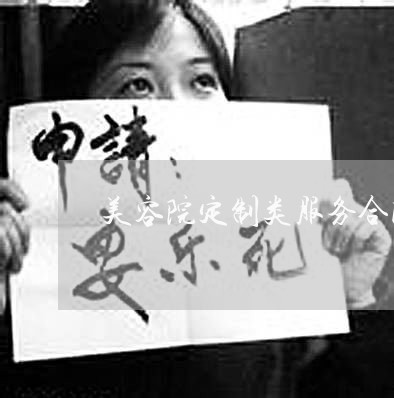 申請：
美容院定制类服务合
安乐死